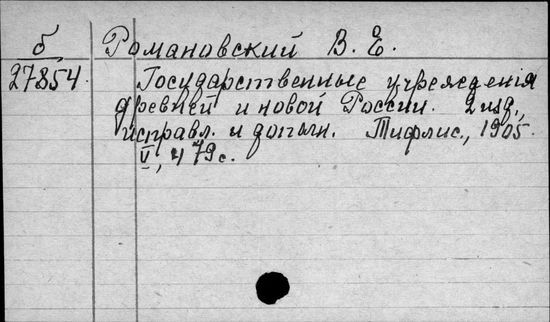 б Романовский В. Е.
27854. Государственные учрежденія
древней и новой России. 2 изд.,
исправл. и дополн. Тифлис, 1905.
V, 479 с.